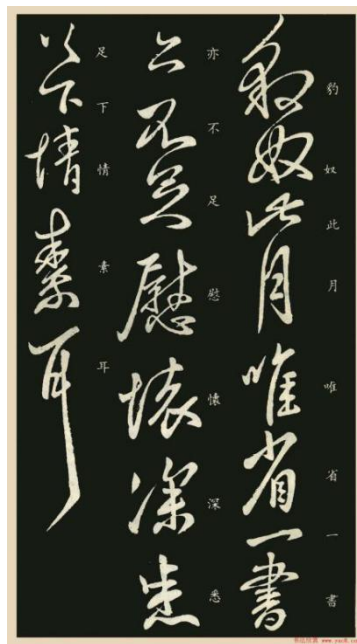 豹奴此月唯省一書
亦不足慰懐深悉
足下情素耳